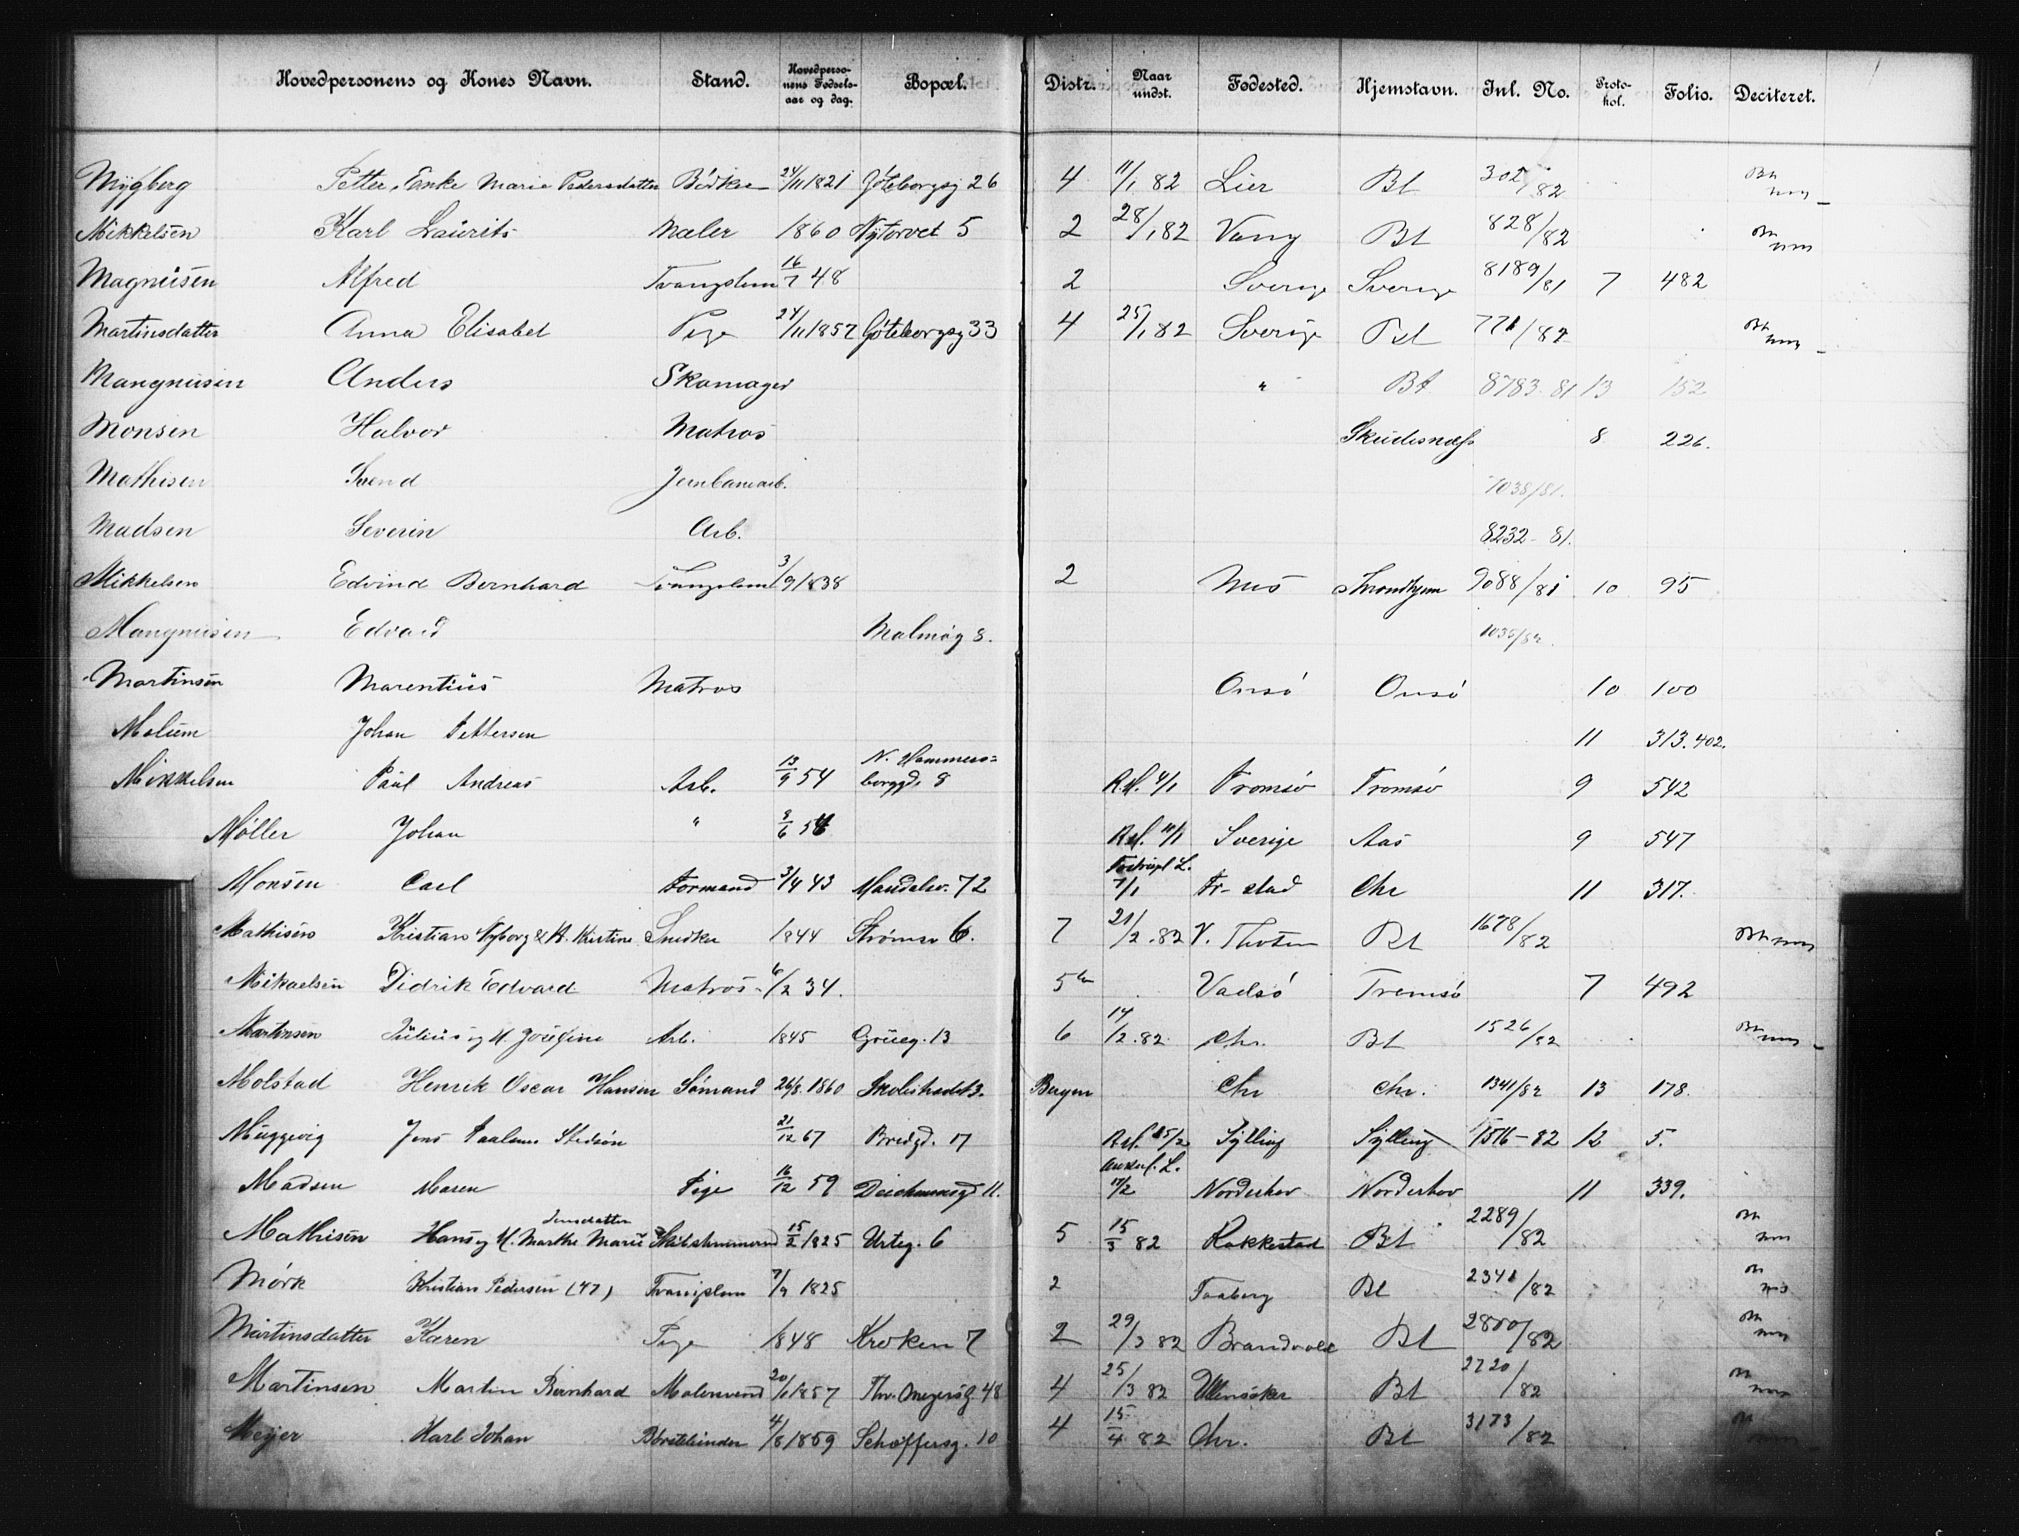 Hovedpersonens og Kones Navn. Stand. Hovedpersonens Fødselsaar og dag. Bopæl. Distr. Naar undst. Fødested. Hjemstavn. Inl. No. Protokol. Folio. Deciteret.
Mygberg Petter, Enke Marie Pedersdatter Bödker 24/11 1821 Göteborgsg 26 4 11/1 82 Lier Bt 302/82
Mikkelsen Karl Laurits Maler 1860 Nytorvet 5 2 28/1 82 Vang Bt 828/82
Magnusen Alfred Tvangslem 16/7 48 2 Sverige Sverige 8189/81 7 482
Martinsdatter Anna Elisabet Pige 24/11 1857 Göteborgsg 33 4 25/1 82 Sverige Bt 771/82
Mangnusen Anders Skomager " Bt 8783-81 13 152
Monsen Halvor Matros Skudesnæss 8 226.
Mathisen Svend Jernbanearb. 1038/81.
Madsen Severin Arb. 8232-81.
Mikkelsen Edvind Bernhard Tvangslem 3/9 1838 2 Næs Trondhjem 9088/81 10 95
Mangnusen Edvard Malmög 8. 1035/82.
Martinsen Marentius Matros Onsö Onsö 10 100
Malum Johan Pettersen 11 313.402.
Mikkelsen Paul Andreas Arb. 13/9 54 N. Hammersborggd. 8 Rsf. 4/1 Tromsø Tromsø 9 542
Møller Johan " 8/6 54 Rsf. 11/1 Sverige Aas 9 547
Monsen Carl Formand 3/4 43 Mandalsv. 72 7/1 Fr-stad Chr 11 317.
Mathisen Kristian Nyborg & H. Kristine Snedker 1844 Strømsv 6. 7 21/2.82 V. Thoten Bt 1678/82
Mikaelsen Didrik Edvard Matros 6/2 34. 5te Vadsö Tromsö 7 492
Martinsen Julius og H. Josefine Arb. 1845 Grüneg. 13 6 14/2.82. Chr. Bt 1526/82
Molstad Henrik Oscar Hansen Sømand 26/8 1860 Skolestrædet 3. Bergen Chr Chr. 1341/82 13 178.
Muggevig Jens Paalsen 21/12 67 Bredgd. 17 Rsf. 15/2 Sylling Sylling 1516-82 12 5.
Madsen Maren Pige 16/12 59 Deichmansgd 11. 17/2 Norderhov Norderhov 11 339.
Mathisen Hans og H. Marthe Marie Jensdatter 15/2 1825 Urteg. 6 5 15/3 82 Rakkestad Bt 2289/82
Mörk Kristian Pedersen (47) Tvangslem 7/9 1825 2 Faaberg Bt 2341/82
Martinsdatter Karen Pige 1848 Kroken 7 2 29/3 82 Brandvold Bt 2800/82
Martinsen Martin Bernhard Malersvend 20/1 1857 Thv. Meyersg. 48 4 25/3 82 Ullensaker Bt 2720/82
Meyer Karl Johan Børstebinder 4/8 1859 Schæffersg. 10 4 15/4 82 Chr. Bt 3173/82